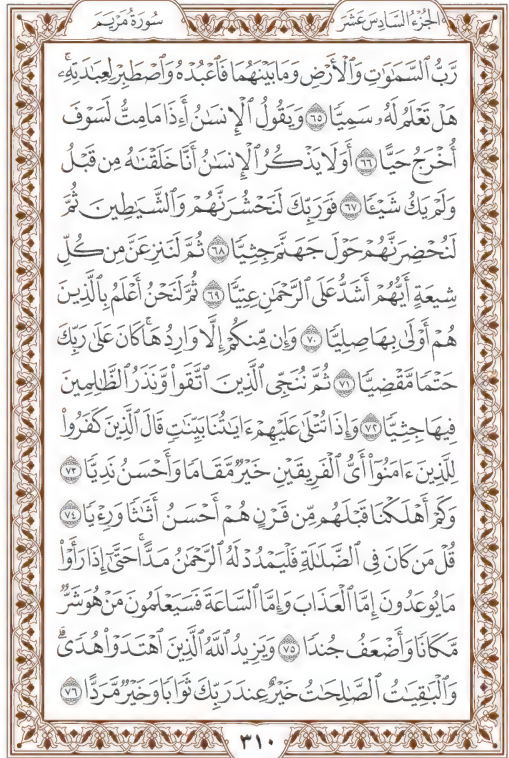 الجُزْءُ السَّادِسَ عَشَرَ
سُورَةُ مَرْيَم
رَّبُّ ٱلسَّمَٰوَٰتِ وَٱلْأَرْضِ وَمَا بَيْنَهُمَا فَٱعْبُدْهُ وَٱصْطَبِرْ لِعِبَٰدَتِهِۦۚ
هَلْ تَعْلَمُ لَهُۥ سَمِيًّا ٦٥ وَيَقُولُ ٱلْإِنسَٰنُ أَءِذَا مَا مِتُّ لَسَوْفَ
أُخْرَجُ حَيًّا ٦٦ أَوَلَا يَذْكُرُ ٱلْإِنسَٰنُ أَنَّا خَلَقْنَٰهُ مِن قَبْلُ
وَلَمْ يَكُ شَيْـًٔا ٦٧ فَوَرَبِّكَ لَنَحْشُرَنَّهُمْ وَٱلشَّيَٰطِينَ ثُمَّ
لَنُحْضِرَنَّهُمْ حَوْلَ جَهَنَّمَ جِثِيًّا ٦٨ ثُمَّ لَنَنزِعَنَّ مِن كُلِّ
شِيعَةٍ أَيُّهُمْ أَشَدُّ عَلَى ٱلرَّحْمَٰنِ عِتِيًّا ٦٩ ثُمَّ لَنَحْنُ أَعْلَمُ بِٱلَّذِينَ
هُمْ أَوْلَىٰ بِهَا صِلِيًّا ٧٠ وَإِن مِّنكُمْ إِلَّا وَارِدُهَاۚ كَانَ عَلَىٰ رَبِّكَ
حَتْمًا مَّقْضِيًّا ٧١ ثُمَّ نُنَجِّى ٱلَّذِينَ ٱتَّقَوا۟ وَّنَذَرُ ٱلظَّٰلِمِينَ
فِيهَا جِثِيًّا ٧٢ وَإِذَا تُتْلَىٰ عَلَيْهِمْ ءَايَٰتُنَا بَيِّنَٰتٍ قَالَ ٱلَّذِينَ كَفَرُوا۟
لِلَّذِينَ ءَامَنُوٓا۟ أَىُّ ٱلْفَرِيقَيْنِ خَيْرٌ مَّقَامًا وَأَحْسَنُ نَدِيًّا ٧٣
وَكَمْ أَهْلَكْنَا قَبْلَهُم مِّن قَرْنٍ هُمْ أَحْسَنُ أَثَٰثًا وَرِءْيًا ٧٤
قُلْ مَن كَانَ فِى ٱلضَّلَٰلَةِ فَلْيَمْدُدْ لَهُ ٱلرَّحْمَٰنُ مَدًّاۚ حَتَّىٰٓ إِذَا رَأَوْا۟
مَا يُوعَدُونَ إِمَّا ٱلْعَذَابَ وَإِمَّا ٱلسَّاعَةَ فَسَيَعْلَمُونَ مَنْ هُوَ شَرٌّ
مَّكَانًا وَأَضْعَفُ جُندًا ٧٥ وَيَزِيدُ ٱللَّهُ ٱلَّذِينَ ٱهْتَدَوْا۟ هُدًىۗ
وَٱلْبَٰقِيَٰتُ ٱلصَّٰلِحَٰتُ خَيْرٌ عِندَ رَبِّكَ ثَوَابًا وَخَيْرٌ مَّرَدًّا ٧٦
٣١٠